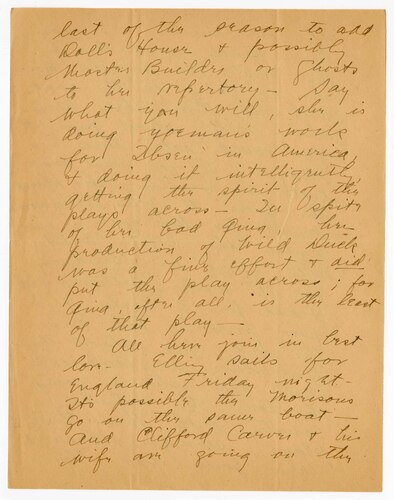 last of the season to add
Doll's House & possibly
Master Builder or Ghosts
to her repertory – Say
what you will, she is
doing yoemans work
for Ibsen in America,
& doing it intelligently,
getting the spirit of the
plays across – In spite
of her bad Gina, her
production of Wild Duck
was a fine effort & did
put the play across; for
Gina, after all, is the least
of that play –
All here join in best
love. Ellin sails for
England Friday night –
Its possible the Morisons
go on the same boat –
And Clifford Carver & his
wife are going on the